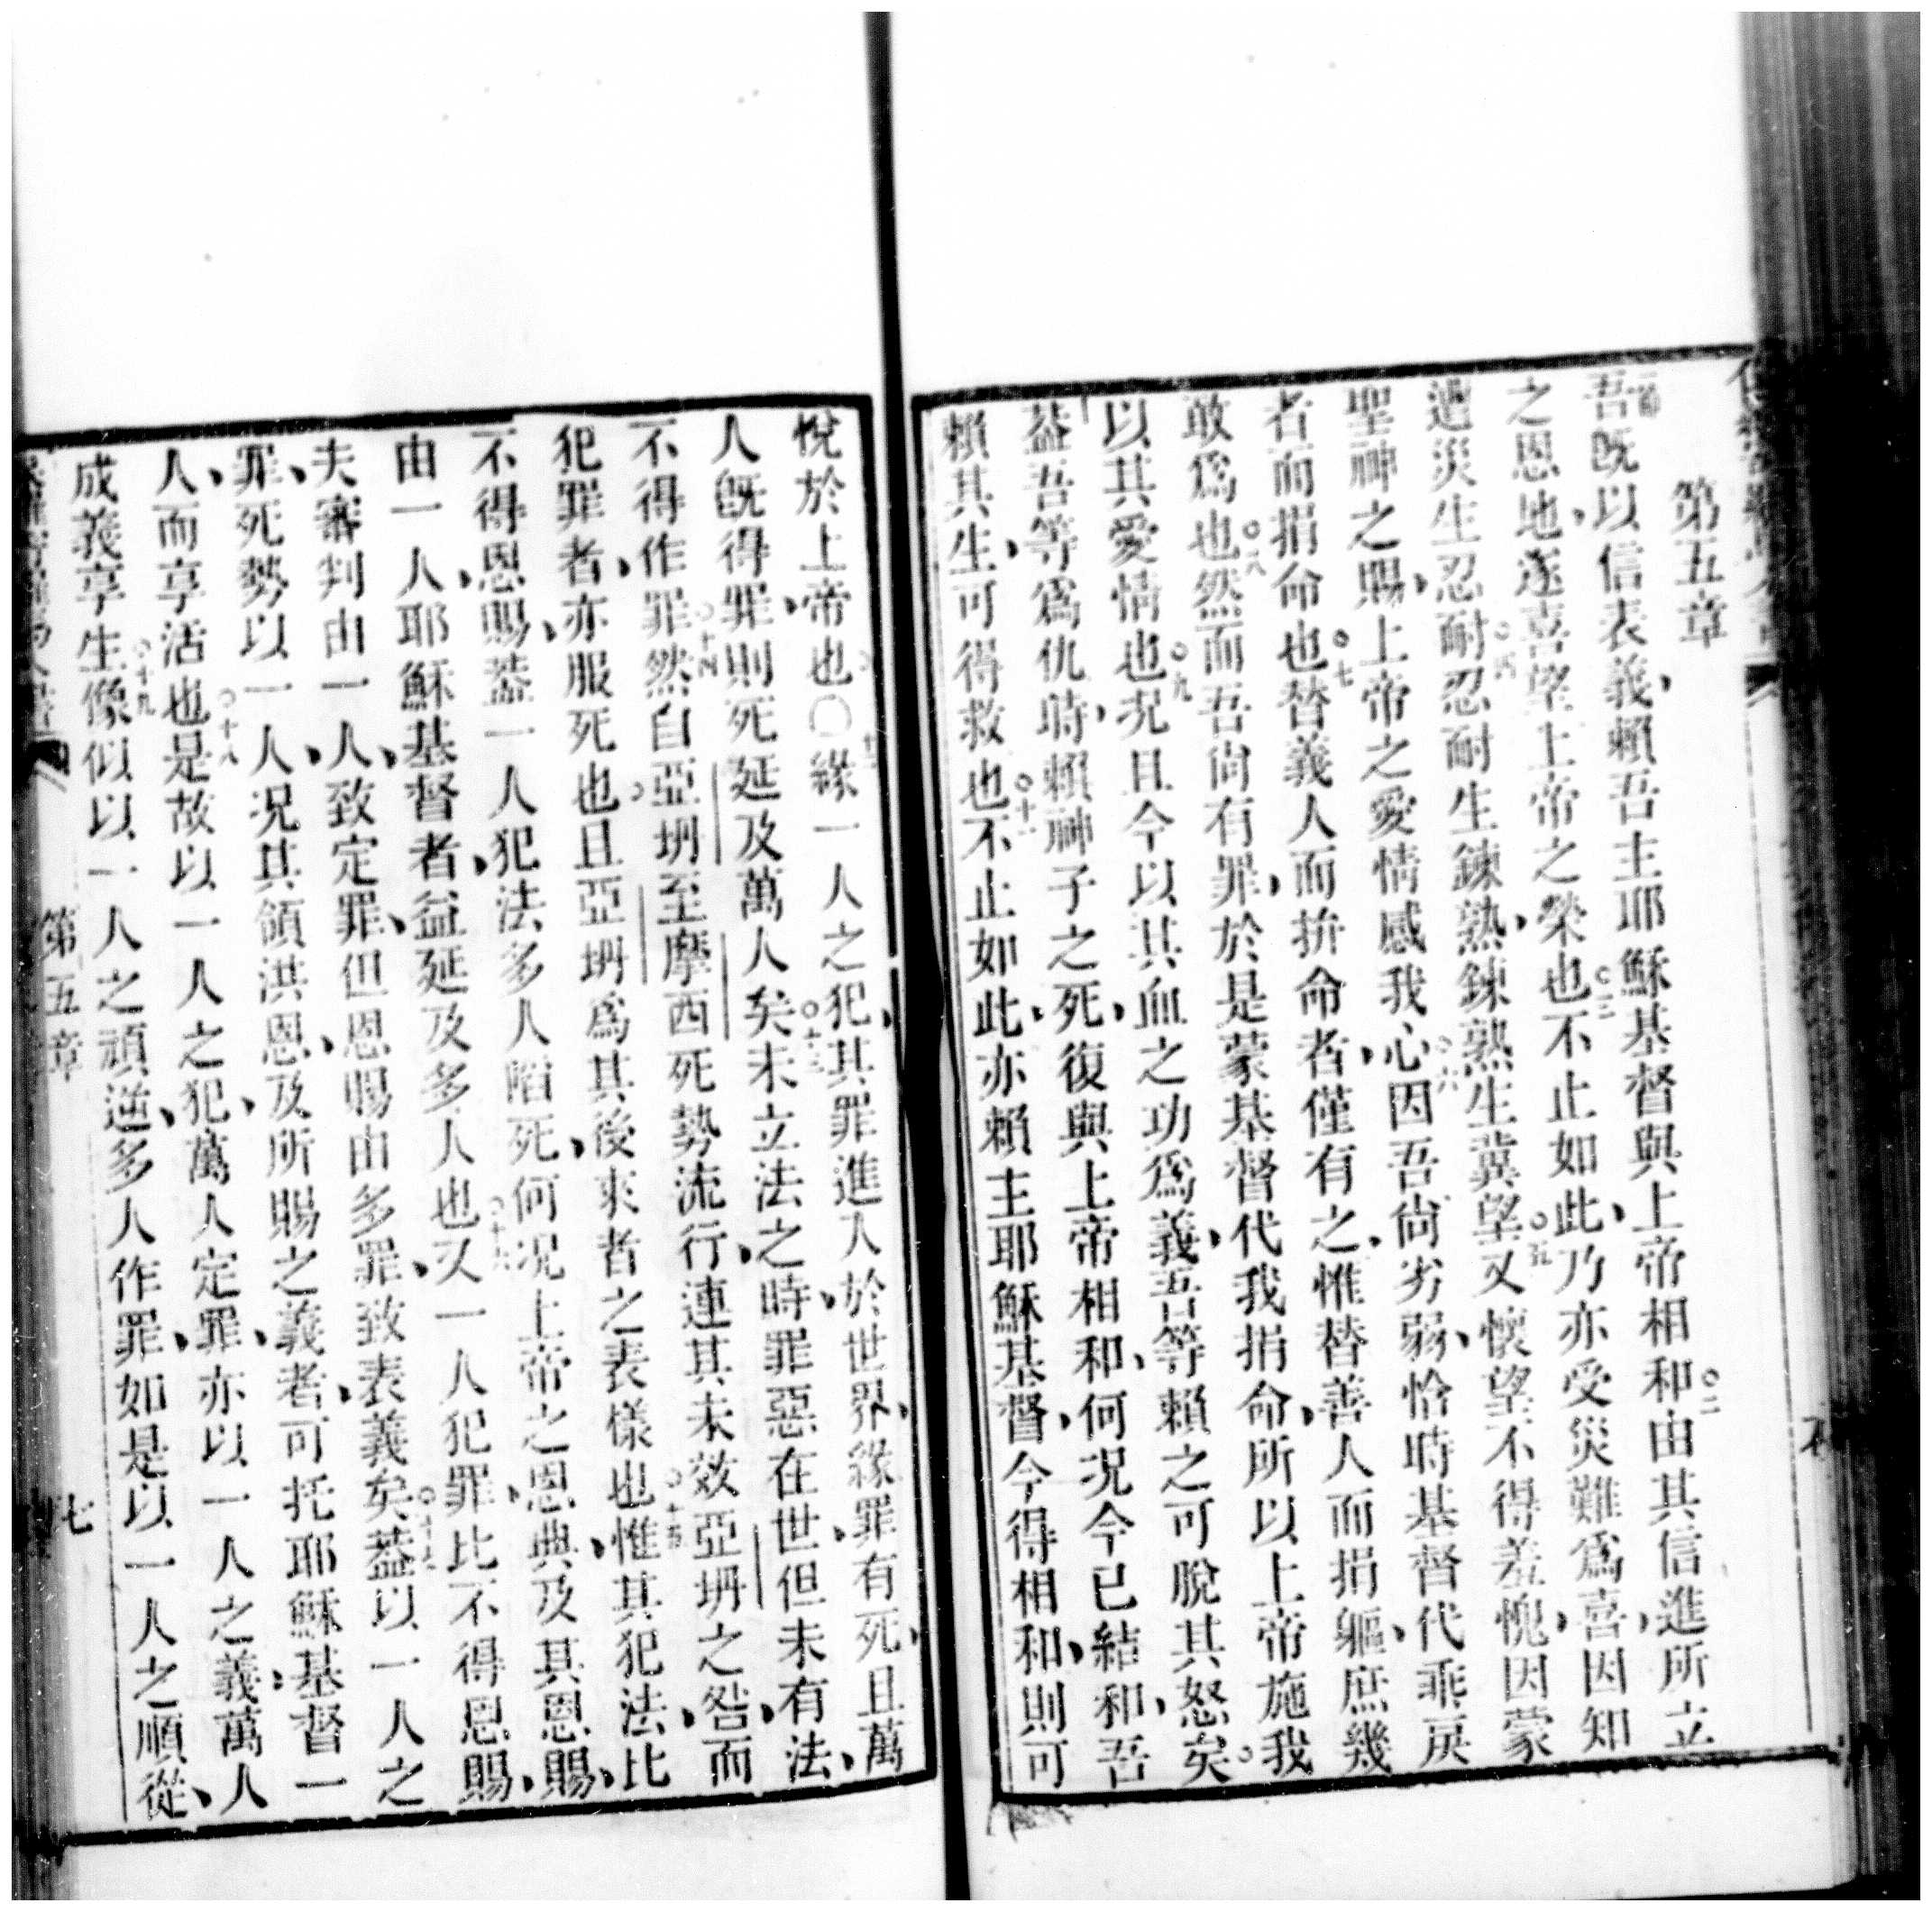 第五章
一節吾既以信表義、賴吾主耶穌基督與上帝相和○二由其信進所立
之恩地、遂喜望上帝之榮也○三不止如此、乃亦受災難爲喜、因知
遇災生忍耐○四忍耐生鍊熟、鍊熟生冀望○五又懷望不得羞愧、因蒙
聖神之賜、上帝之愛情感我心○六因吾尚劣弱、恰時基督代乖戾
者而捐命也○七替義人而拚命者、僅有之、惟替善人而捐軀、庶幾
敢爲也○八然而吾尚有罪、於是蒙基督代我捐命、所以上帝施我
以其愛情也○九況且今以其血之功爲義、吾等賴之可脫其怒矣。
葢吾等爲仇時、賴神子之死、復與上帝相和、何況今已結和、吾
賴其生、可得救也○十一不止如此、亦賴主耶穌基督、今得相和、則可
悅於上帝也○緣一人之犯、其罪進入於世界、緣罪有死、且萬
人既得罪、則死延及萬人矣○十三未立法之時、罪惡在世、但未有法、
不得作罪○十四然自亞坍至摩西死勢流行、連其未效亞坍之咎、而
犯罪者、亦服死也。且亞坍爲其後來者之表樣也○十五惟其犯法、比
不得恩賜、葢一人犯法、多人陷死、何況上帝之恩典、及其恩賜、
由一人、耶穌基督者、益延及多人也○十六又一人犯罪、比不得恩賜、
夫審判由一人、致定罪、但恩賜由多罪、致表義矣○十七葢以一人之
罪、死勢以一人、況其領洪恩、及所賜之義者、可托耶穌基督一
人、而享活也○十八是故以一人之犯、萬人定罪、亦以一人之義、萬人
成義享生○十九像似以一人之頑逆、多人作罪、如是以一人之順從、
第五章
七